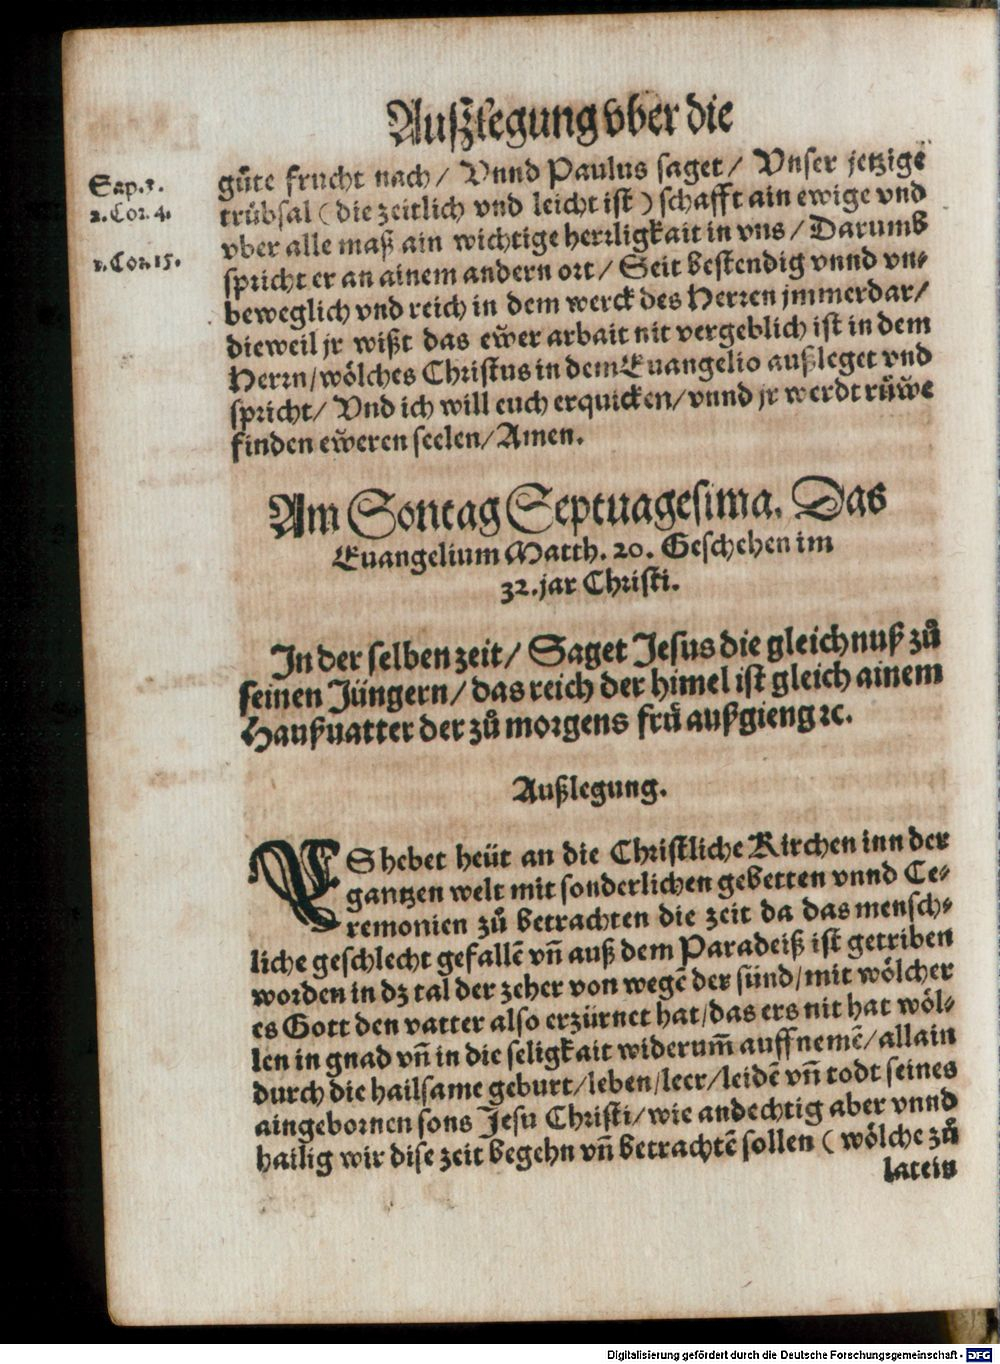 Außlegung vber die
Sap. 3.
2. Cor. 4.
1. Cor. 15.
gůte frucht nach / Vnnd Paulus saget / Vnser jetzige
trübsal ( die zeitlich vnd leicht ist ) schafft ain ewige vnd
vber alle maß ain wichtige herrligkait in vns / Darumb
spricht er an ainem andern ort / Seit bestendig vnnd vn⸗
beweglich vnd reich in dem werck des Herren jmmerdar /
dieweil jr wißt das ewer arbait nit vergeblich ist in dem
Herrn / wölches Christus in dem Euangelio außleget vnd
spricht / Vnd ich will euch erquicken / vnnd jr werdt růwe
finden eweren seelen / Amen.
Am Sontag Septuagesima. Das
Euangelium Matth. 20. Geschehen im
32. jar Christi.
In der selben zeit / Saget Jesus die gleichnuß zů
seinen Jüngern / das reich der himel ist gleich ainem
Haußuatter der zů morgens frů außgieng ꝛc.
Außlegung.
ES hebet heüt an die Christliche Kirchen inn der
gantzen welt mit sonderlichen gebetten vnnd Ce⸗
remonien zů betrachten die zeit da das mensch⸗
liche geschlecht gefallē vñ auß dem Paradeiß ist getriben
worden in dz tal der zeher von wegē der sünd / mit wölcher
es Gott den vatter also erzürnet hat / das ers nit hat wöl⸗
len in gnad vñ in die seligkait widerum̃ auffnemē / allain
durch die hailsame geburt / leben / leer / leidē vñ todt seines
aingebornen sons Jesu Christi / wie andechtig aber vnnd
hailig wir dise zeit begehn vñ betrachtē sollen ( wölche zů
latein
Digitalisierung gefördert durch die Deutsche Forschungsgemeinschaft - DFG